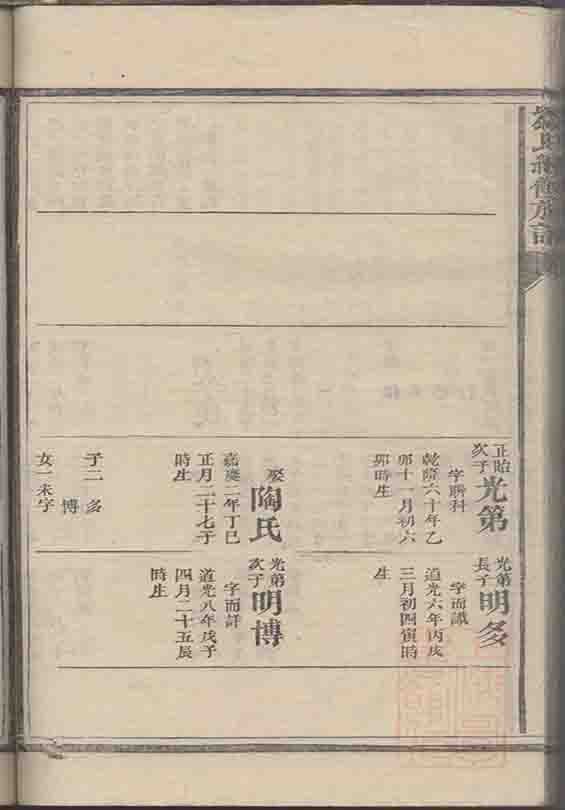 氏續修族譜
正貽
次子
光第
字聯科
乾隆六十年乙
卯十一月初六
卯時生
娶
陶氏
嘉慶二年丁巳
正月二十七子
時生
子二 多
博
女一未字
光第
長子
明多
字而識
道光六年丙戌
三月初四寅時
生
光第
次子
明博
字而詳
道光八年戊子
四月二十五辰
時生